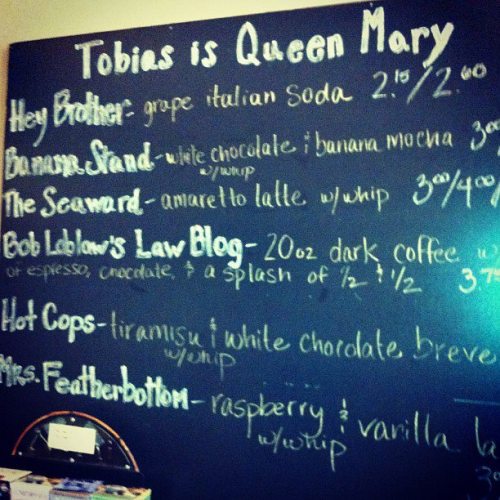 Tobias is Queen Mary
Hey Brother- grape italian soda 2.15/2.60
Banana Stand - white chocolate & banana mocha 300
w/whip
The Seaward - amaretto latte w/whip 300/400/
Bob Loblow's Law Blog - 20oz dark coffee w
of espresso, chocolate, & a splash of 1/2 & 1/2 3.7
Hot Cops - tiramisu & white chocolate breve
w/whip
Mrs. Featherbottom - raspberry & vanilla la
w/whip